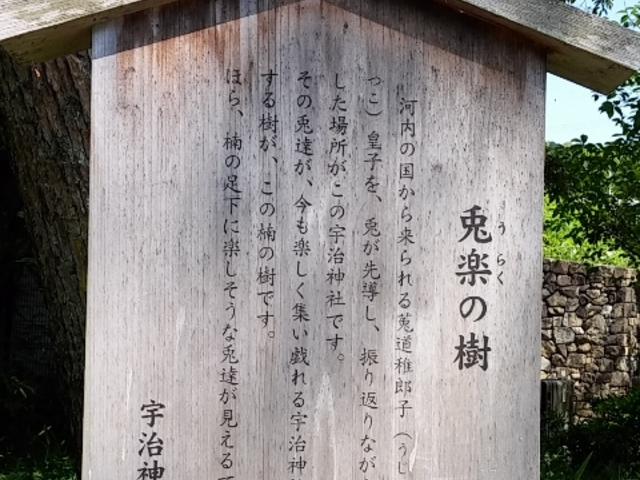 うらく
兎楽の樹
河内の国から来られる菟道稚郎子（うじ
っこ）皇子を、兎が先導し、振り返りなが
した場所がこの宇治神社です。
その兎達が、今も楽しく集い戯れる宇治神
する樹が、この楠の樹です。
ほら、楠の足下に楽しそうな兎達が見える
宇治神